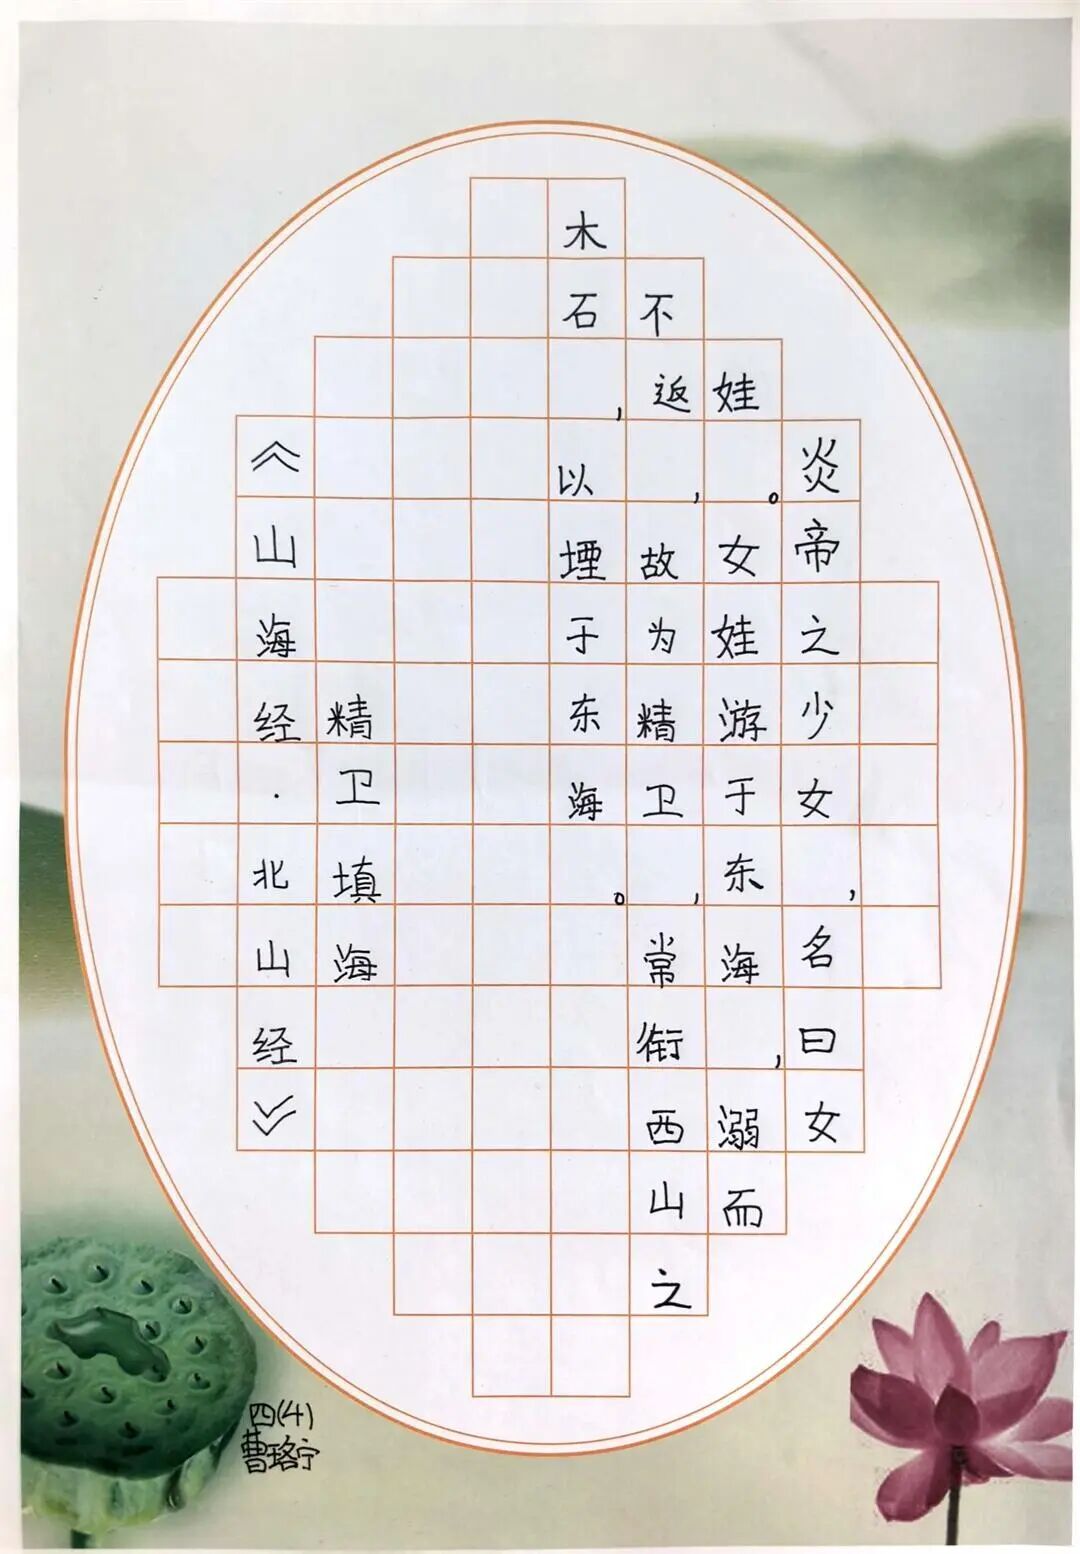 炎帝之少女，名曰女
娃。女娃游于东海，溺而
不返，故为精卫，常衔西山之
木石，以堙于东海。
精卫填海
《山海经·北山经》
四(4)
曹珞宁